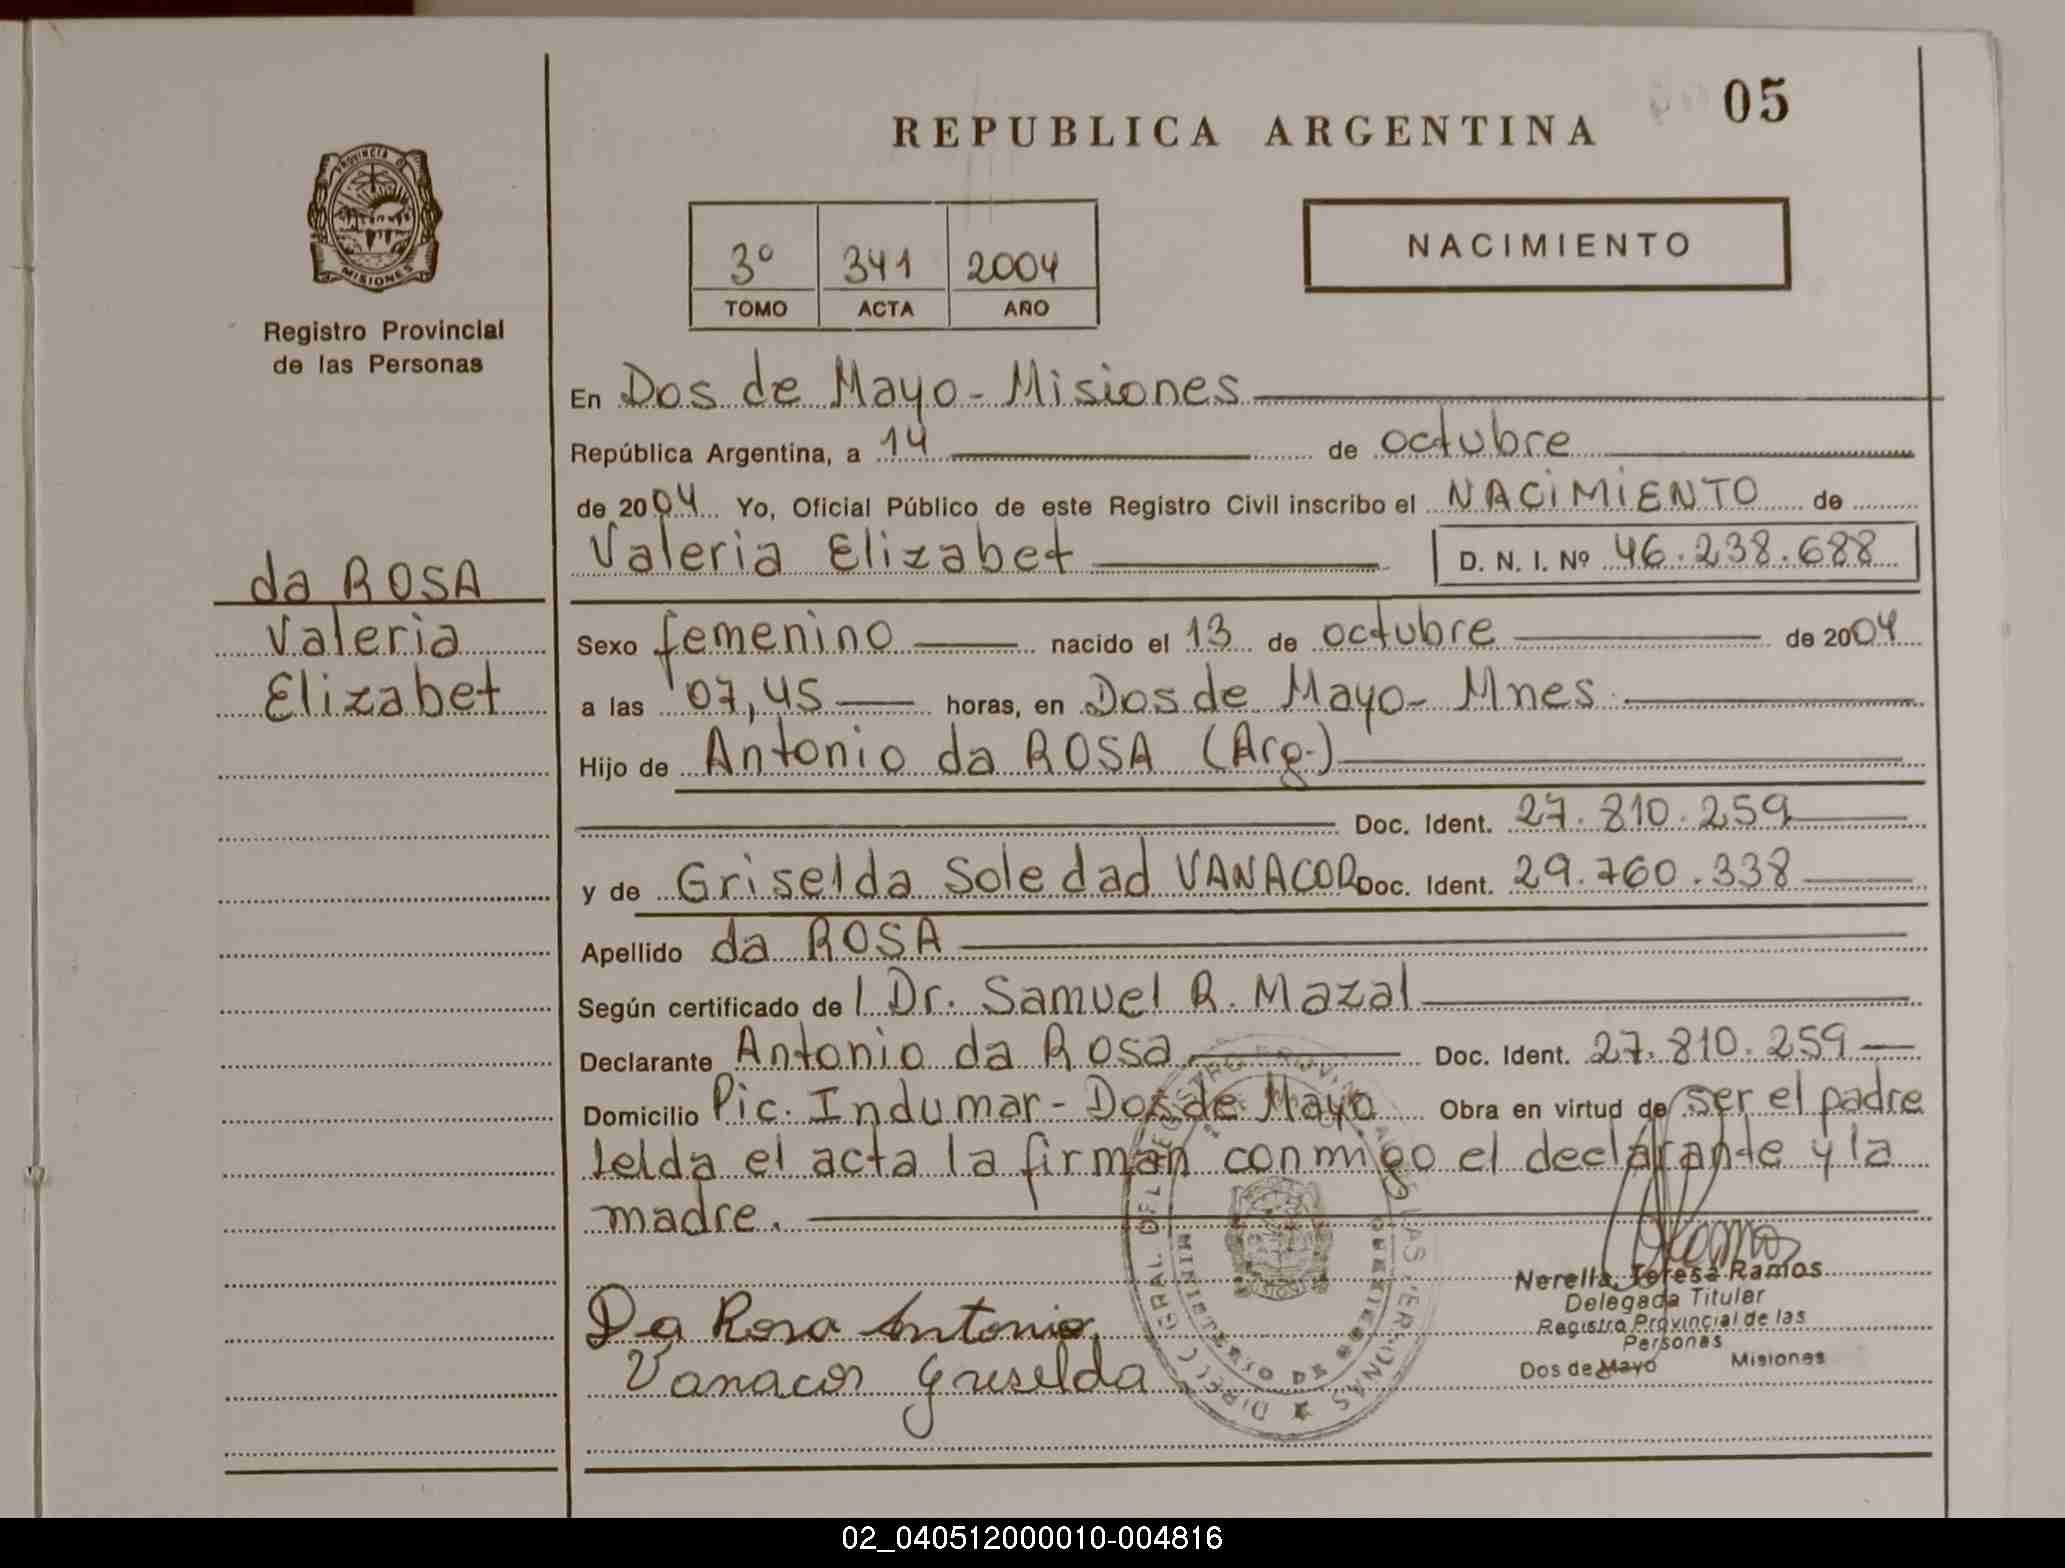 05
REPUBLICA ARGENTINA
PROVINCIA D
MISIONES
Registro Provincial
de las Personas
NACIMIENTO
3º 341 2004
TOMO ACTA AÑO
En Dos de Mayo - Misiones
República Argentina, a 14 de octubre
de 2004 Yo, Oficial Público de este Registro Civil inscribo el NACIMIENTO de
Valeria Elizabet D. N. I. Nº 46.238.688
da ROSA
Valeria
Elizabet
Sexo femenino nacido el 13 de octubre de 2004
a las 07,45 horas, en Dos de Mayo - Mnes
Hijo de Antonio da ROSA (Arg.)
Doc. Ident. 27.810.259
y de Griselda Soledad VANACOR Doc. Ident. 29.760.338
Apellido da ROSA
Según certificado del Dr. Samuel R. Mazal
Declarante Antonio da Rosa Doc. Ident. 27.810.259
Domicilio Pic. Indumar - Dos de Mayo Obra en virtud de ser el padre
leída el acta la firman conmigo el declarante y la
madre.
Da Rosa Antonio
Vanacor Griselda
Nerella Teresa Ramos
Delegada Titular
Registro Provincial de las
Personas
Dos de Mayo Misiones
02_040512000010-004816